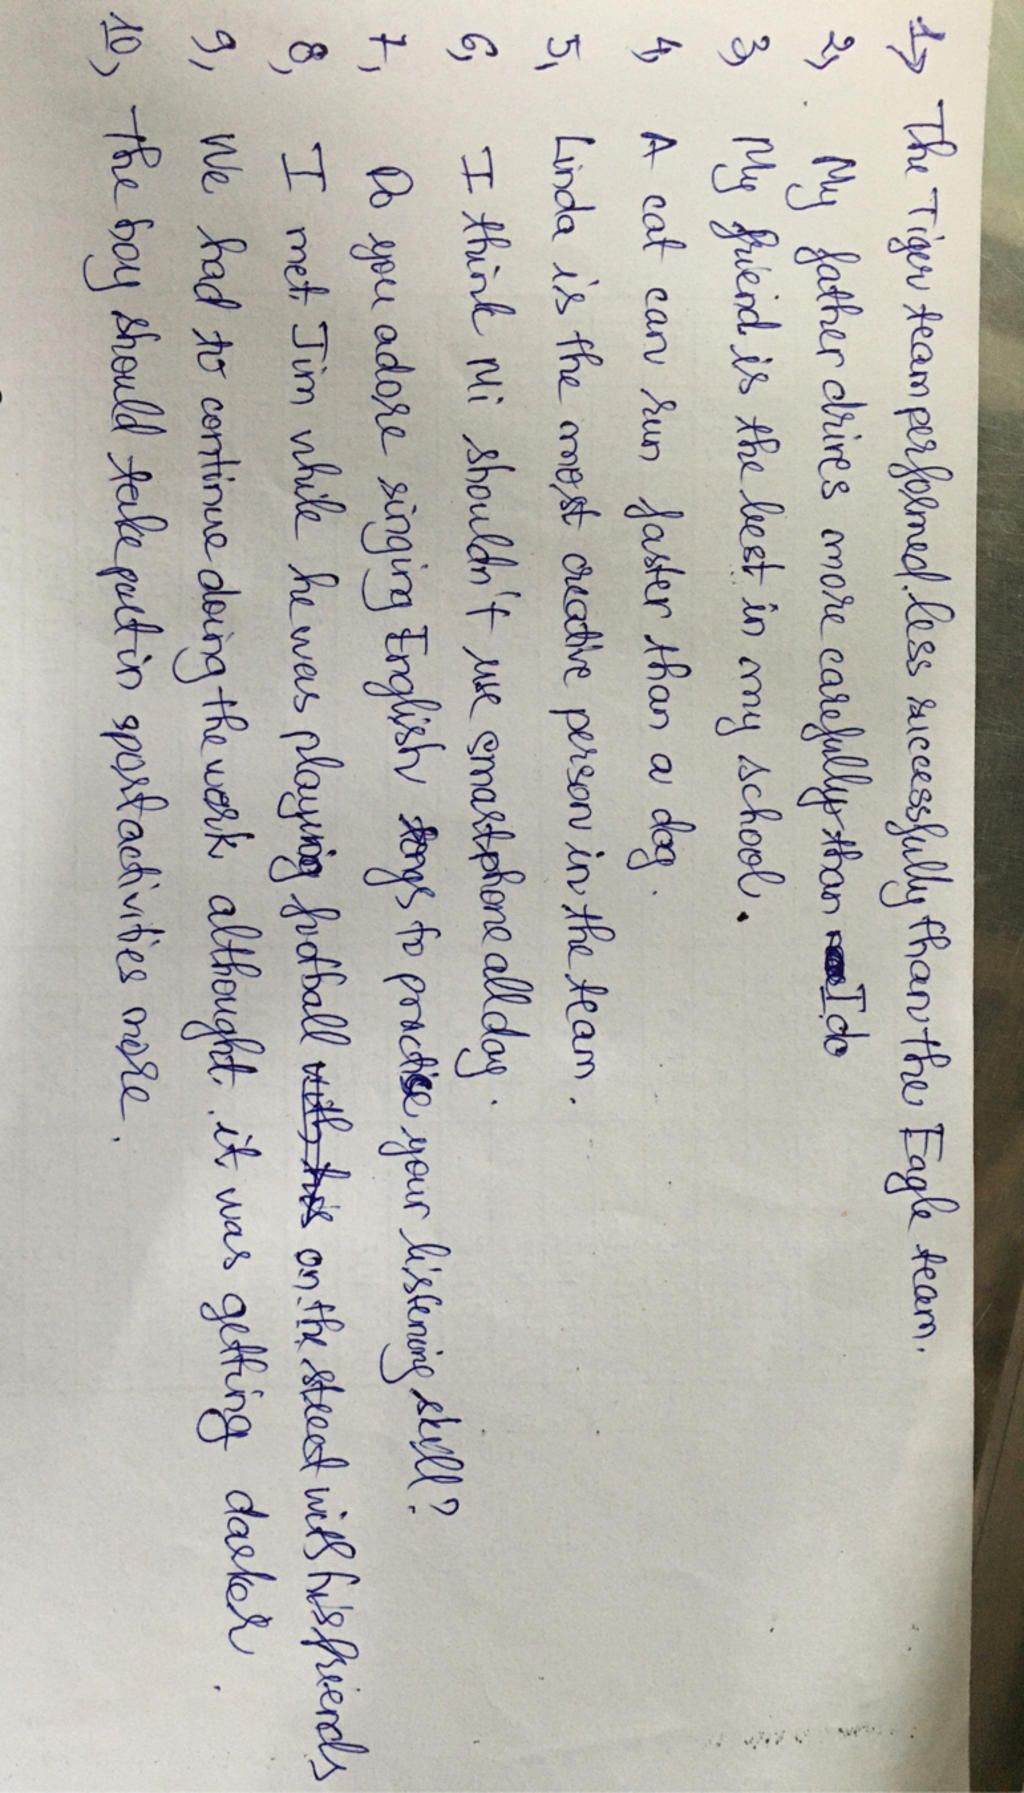 1, The Tiger team performed less successfully than the Eagle team.
2, My father drives more carefully than I do
3, My friend is the best in my school.
4, A cat can run faster than a dog.
5, Linda is the most creative person in the team.
6, I think Mi shouldn't use smartphone all day.
7, Do you adore singing English songs to practice your listening skill?
8, I met Jim while he was playing football with his on the street with his friends
9, We had to continue doing the work althought it was getting darker.
10, The boy should take part in sport activities more.